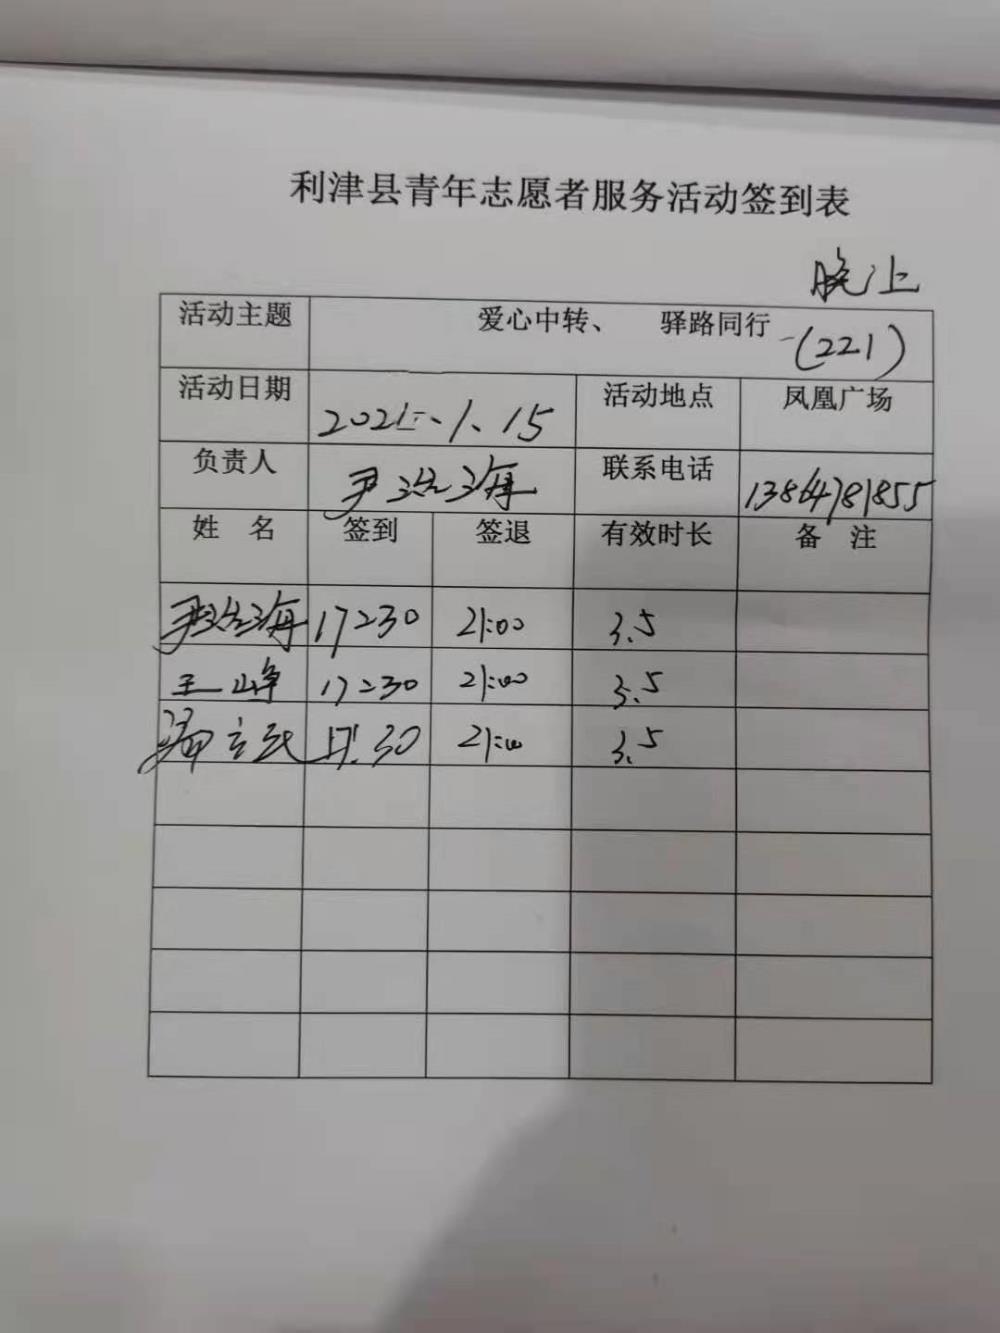 利津县青年志愿者服务活动签到表
晚上
活动主题 爱心中转、 驿路同行 (221)
活动日期 2021、1、15 活动地点 凤凰广场
负责人 尹海 联系电话 13864781855
姓 名 签到 签退 有效时长 备 注
尹海 17:30 21:00 3.5
王峥 17:30 21:00 3.5
立 17:30 21:00 3.5